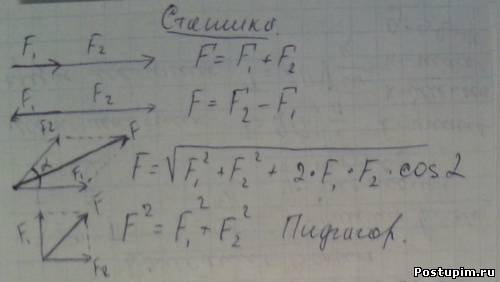 Статика.
F₁ F₂ F = F₁ + F₂
F₁ F₂ F = F₂ - F₁
F₂ F α F₁ F = √F₁² + F₂² + 2·F₁·F₂·cos α
F₁ F F₂ F² = F₁² + F₂² Пифагор.
Postupim.ru